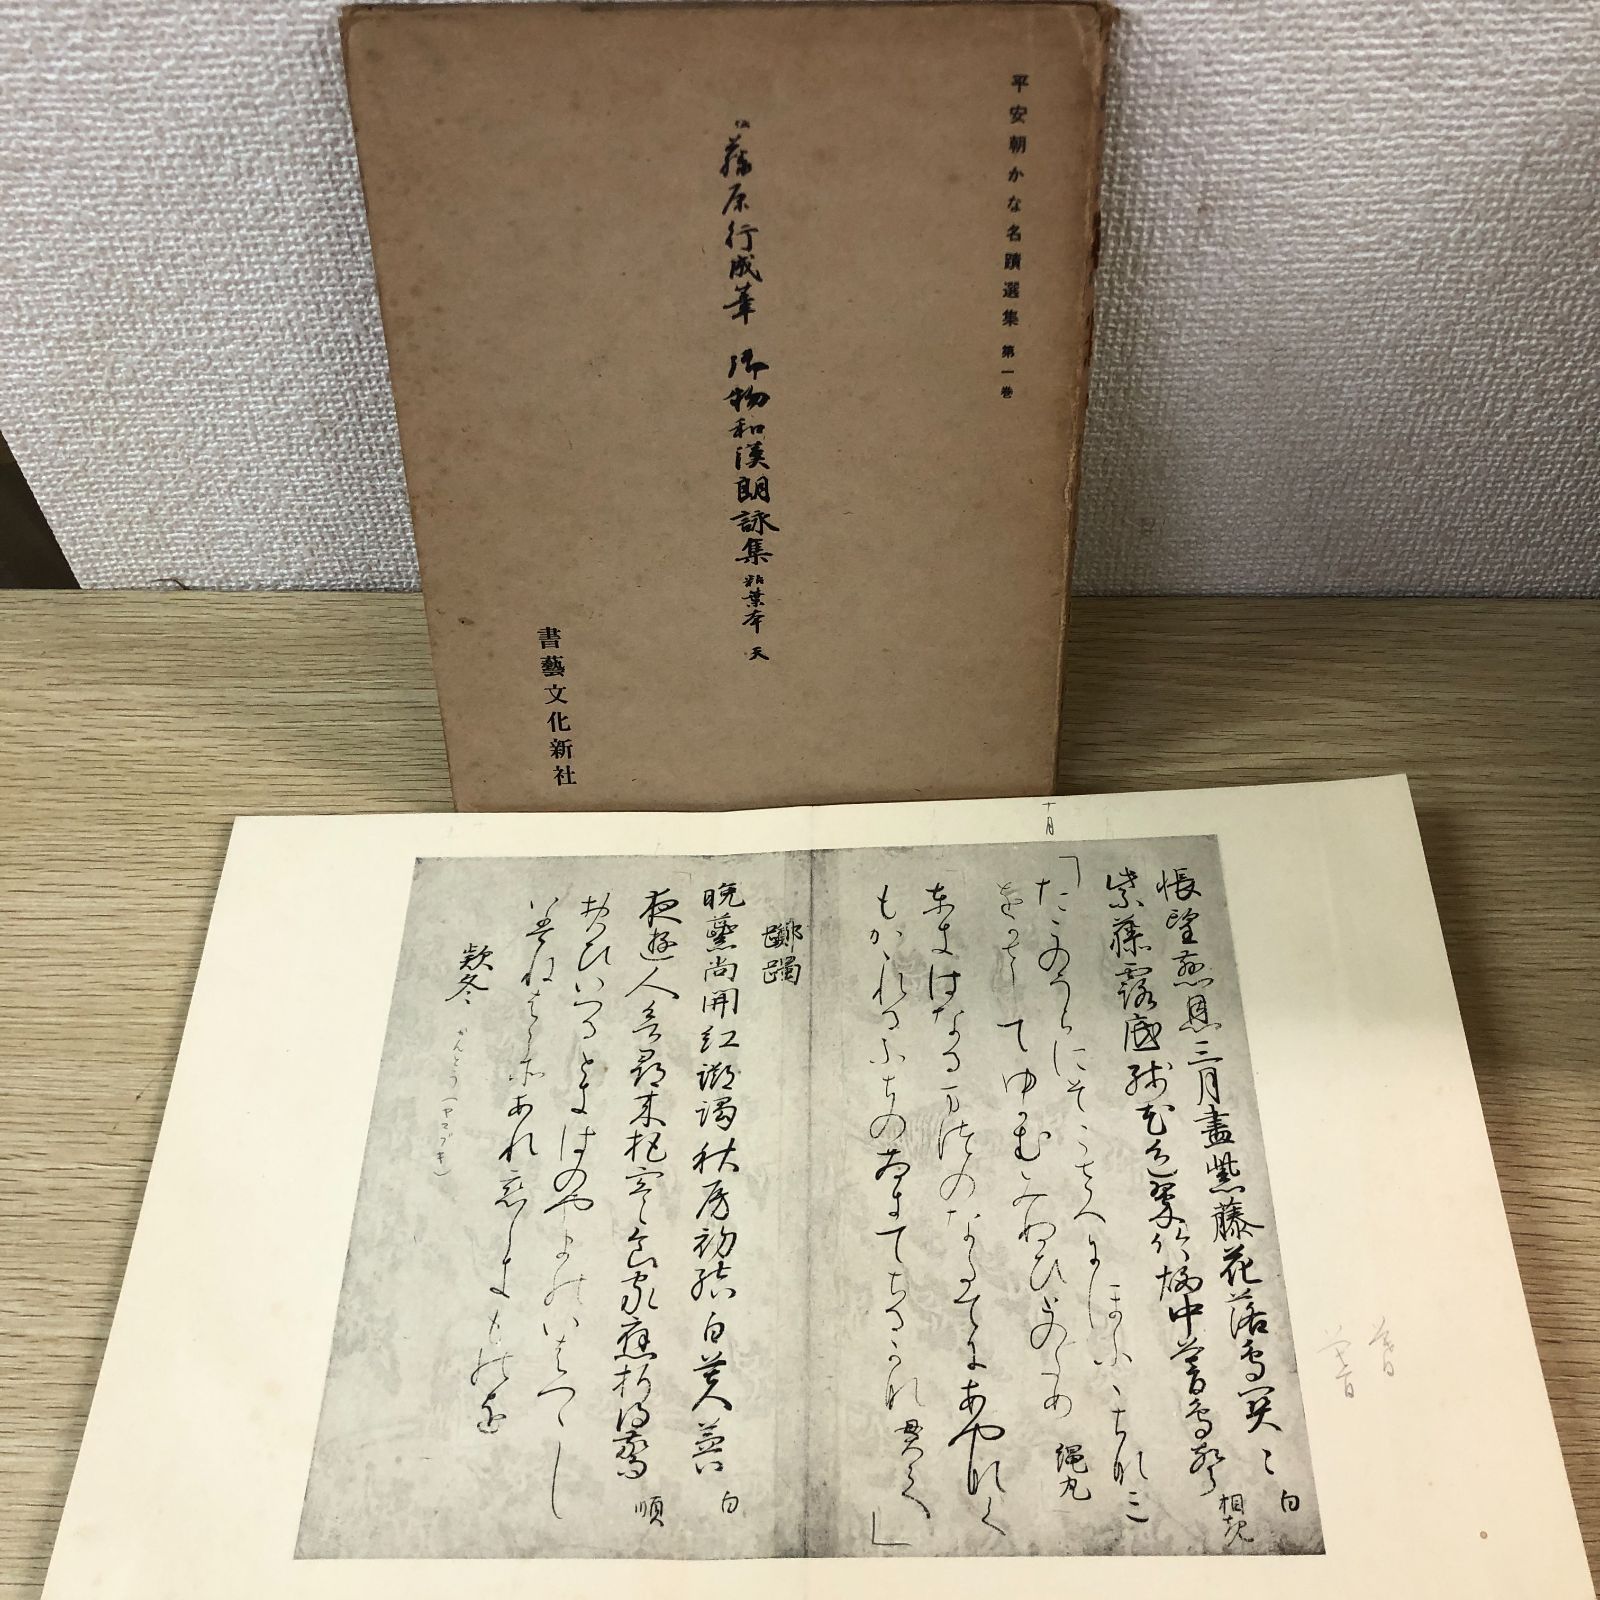 平安朝かな名蹟選集 第一巻
伝 藤原行成筆 御物和漢朗詠集 粘葉本 天
書藝文化新社
十月
悵望慈恩三月盡紫藤花落鳥関〻 白
紫藤露底残花色翠竹煙中暮鳥聲 相規
たこのうらにそこさへにほふふちなみ
をかさしてゆかむみぬひとのため 縄丸
ときはなるまつのなたてにあやなく
もかゝれるふちのさきてちるかな 貫之
躑躅
晩蘂尚開紅躑躅秋房初結白芙蓉 白
夜遊人欲尋来把寒食家應折得驚 順
おもひいつるときはのやまのいはつゝし
いはねはこそあれ恋しきものを
款冬
かんとう(ヤマブキ)